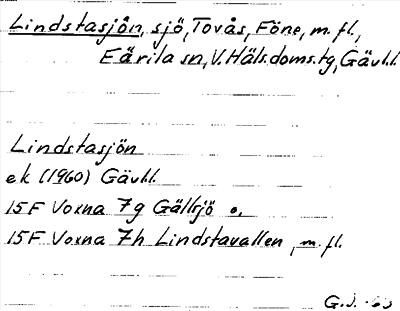 Lindstasjön, sjö, Tovås, Föne, m.fl.,
Färila sn, V. Häls. doms. tg, Gävl.l.
Lindstasjön
ek (1960) Gävl.l.
15F Voxna 7g Gällsjö o.
15F Voxna 7h Lindstavallen, m.fl.